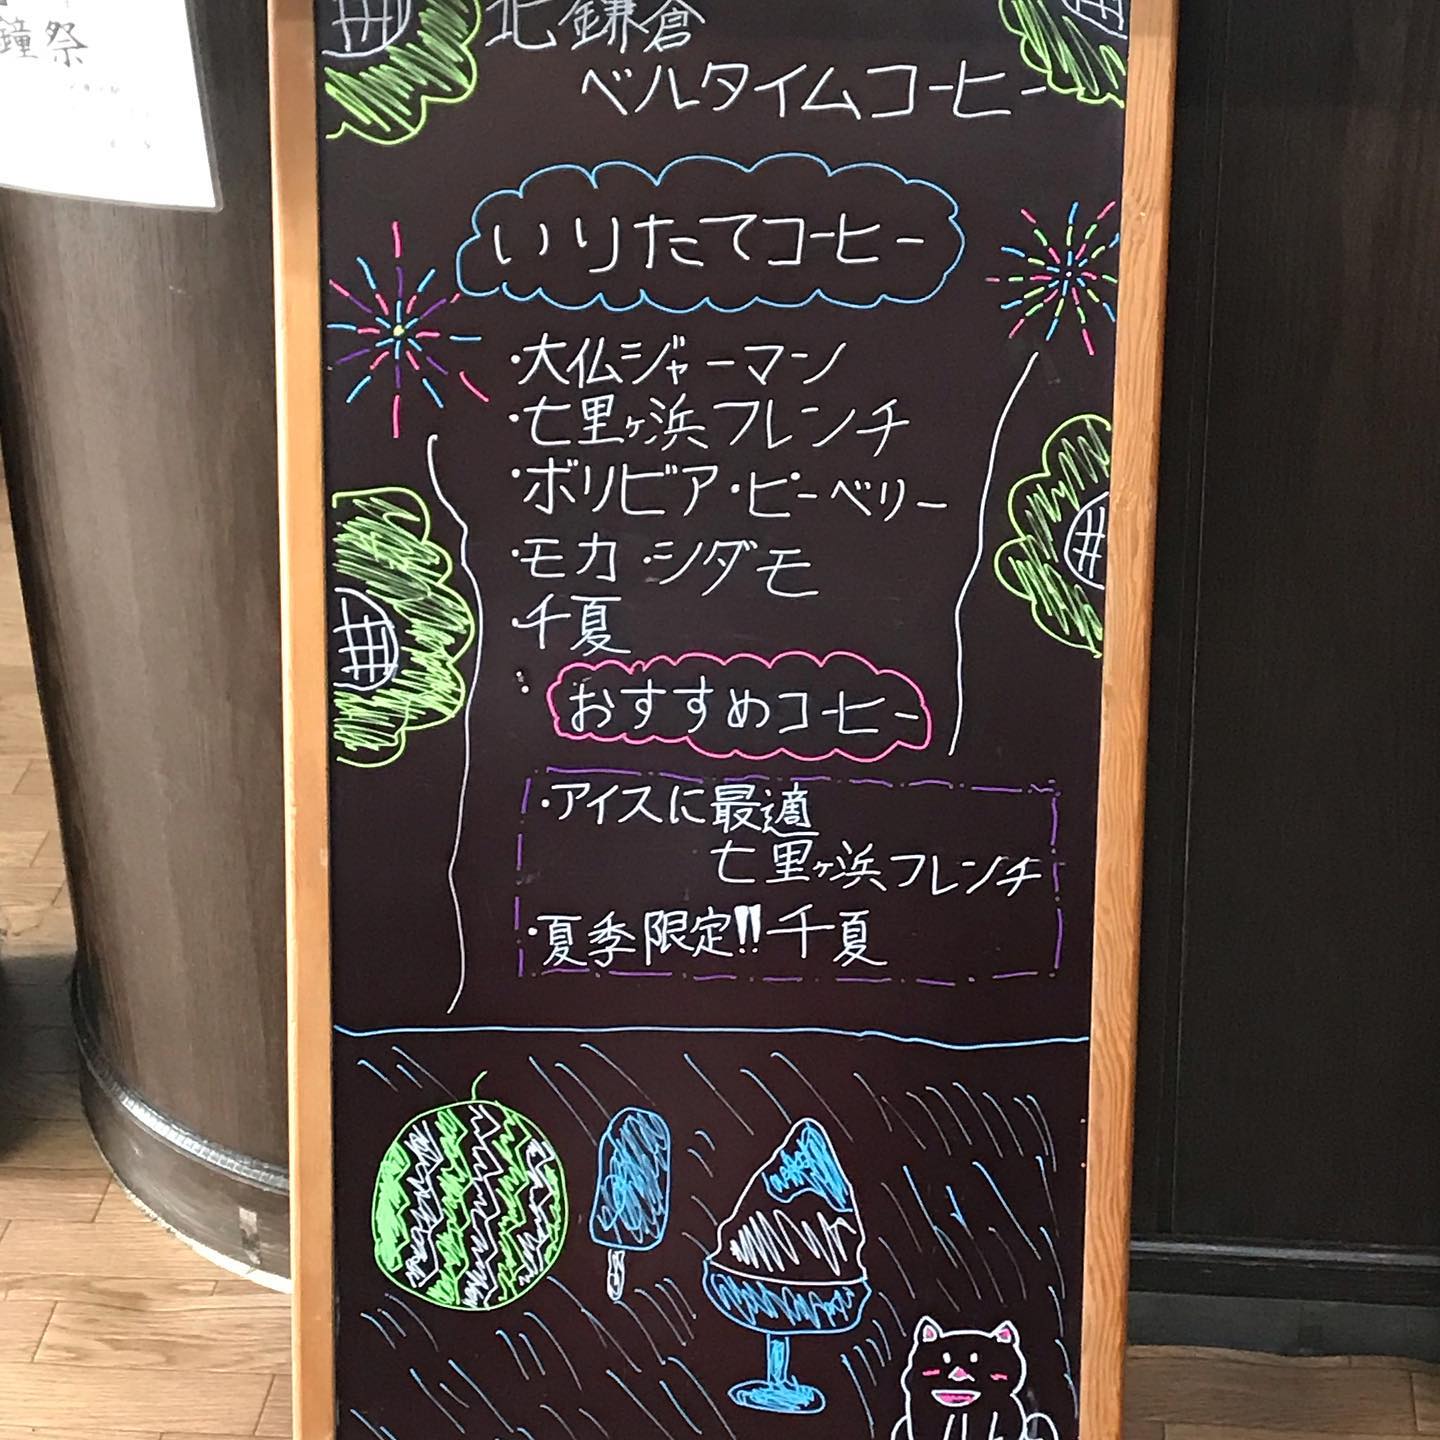 鐘祭
北鎌倉
ベルタイムコーヒー
いりたてコーヒー
・大仏ジャーマン
・七里ヶ浜フレンチ
・ボリビア・ピーベリー
・モカ・シダモ
・千夏
おすすめコーヒー
・アイスに最適
七里ヶ浜フレンチ
・夏季限定!!千夏